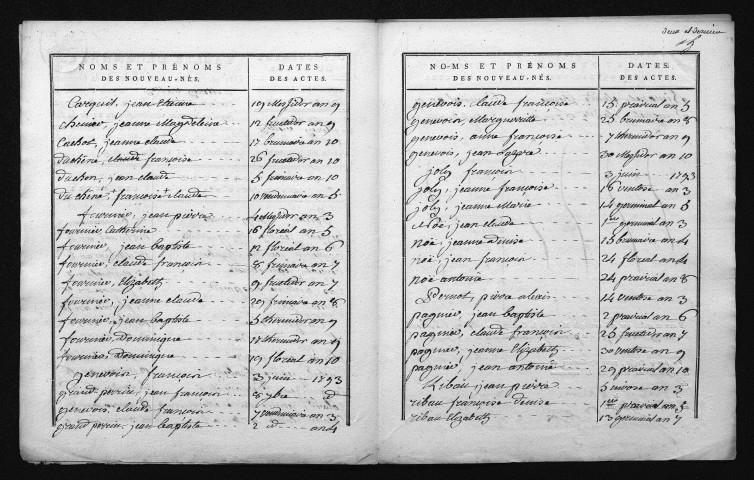 NOMS ET PRÉNOMS DES NOUVEAU-NÉS. DATES DES ACTES.
Carquit, jean Etienne 19 Messidor an 9
Chenier, jeanne Magdeleine 12 fructidor an 9
Cachot, jeanne claude 17 brumaire an 10
duchéne, claude françoise 26 fructidor an 10
duchon, jean claude 5 frimaire an 10
duchéné, françoise claude 10 vendemiaire an 5
fournier, jean pierre 4 Messidor an 3
fournier Catherine 16 floréal an 5
fournier, jean baptiste 12 floréal an 6
fournier, claude francois 8 frimaire an 7
fournier, Elizabeth 9 fructidor an 7
fournier, jeanne claude 29 frimaire an 8
fournier, jean baptiste 5 thermidor an 9
fournier, Dominique 17 thermidor an 9
fournier, Dominique 19 floréal an 10
genevois, francois 3 juin 1793
grand perrin, jean francois 8 9bre id
genevois, claude francois 7 vendemiaire an 3
grand perrin, jean baptiste 2 id an 4
deux et dernier
NOMS ET PRÉNOMS DES NOUVEAU-NÉS. DATES DES ACTES.
genevois, claude françoise 15 prairial an 5
genevois, Marguerite 25 brumaire an 8
genevois, anne françoise 7 thermidor an 9
genevois, jean 30 Messidor an 10
joly francois 3 juin 1793
joly, jeanne françoise 16 ventose an 3
joly, jeanne Marie 14 germinal an 5
Noë, jean claude 1er germinal an 3
noë, jeanne denise 15 brumaire an 4
noë, jean francois 24 floréal an 4
noë antoine 24 prairial an 8
Pernot, pierre alexis 14 ventose an 3
pagnier, jean baptiste 2 prairial an 6
pagnier, claude francois 25 fructidor an 7
pagnier, jeanne Elizabeth 30 ventose an 9
pagnier, jean antoine 29 prairial an 10
Ribau jean pierre 5 nivose an 3
ribau françoise denise 1er prairial an 5
ribau Elizabeth 13 germinal an 7